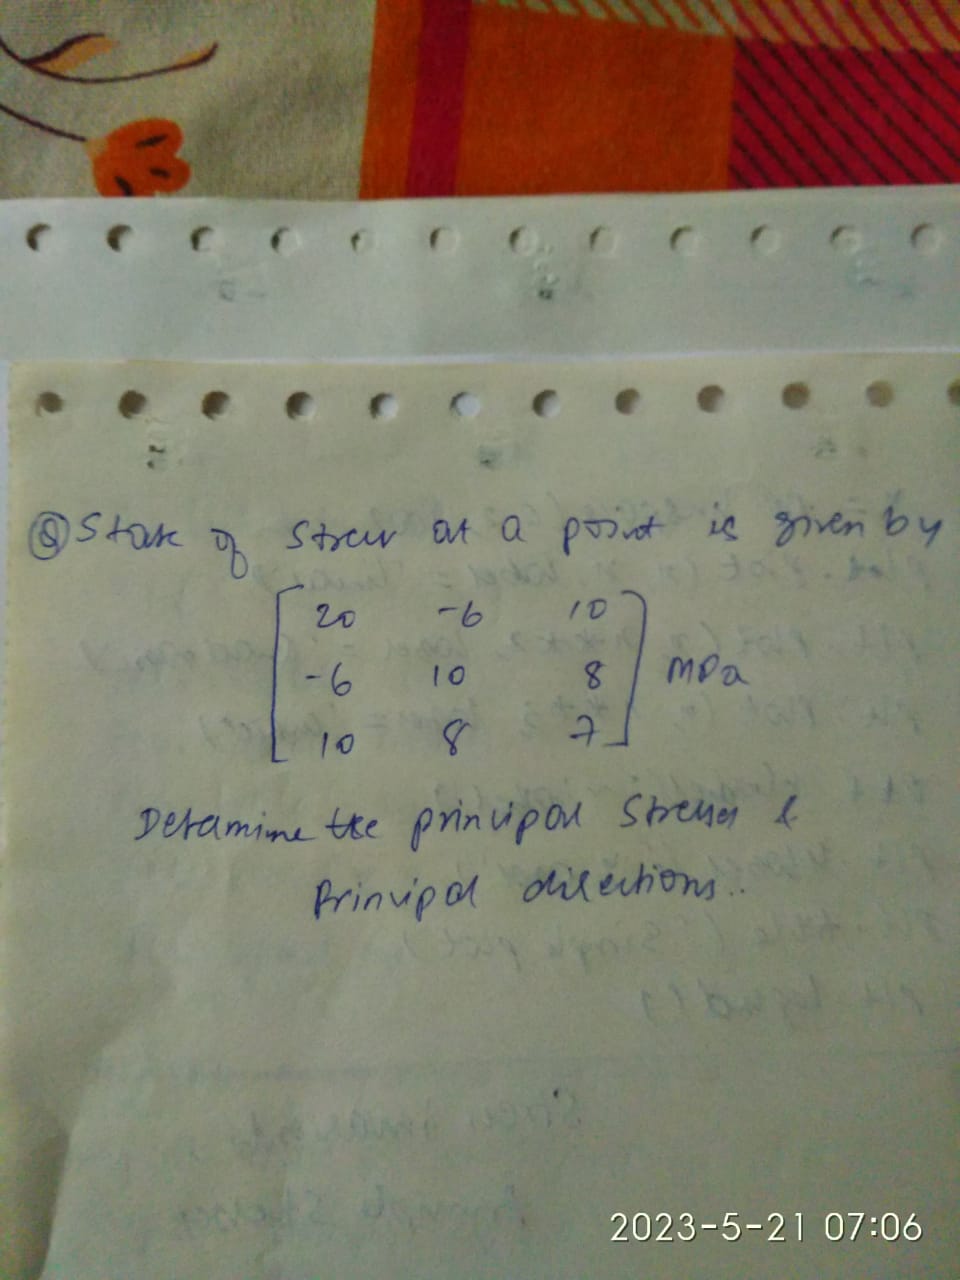 Q State of Stress at a point is given by
20 -6 10
-6 10 8 MPa
10 8 7
Determine the principal Stresses &
Principal directions..
2023-5-21 07:06